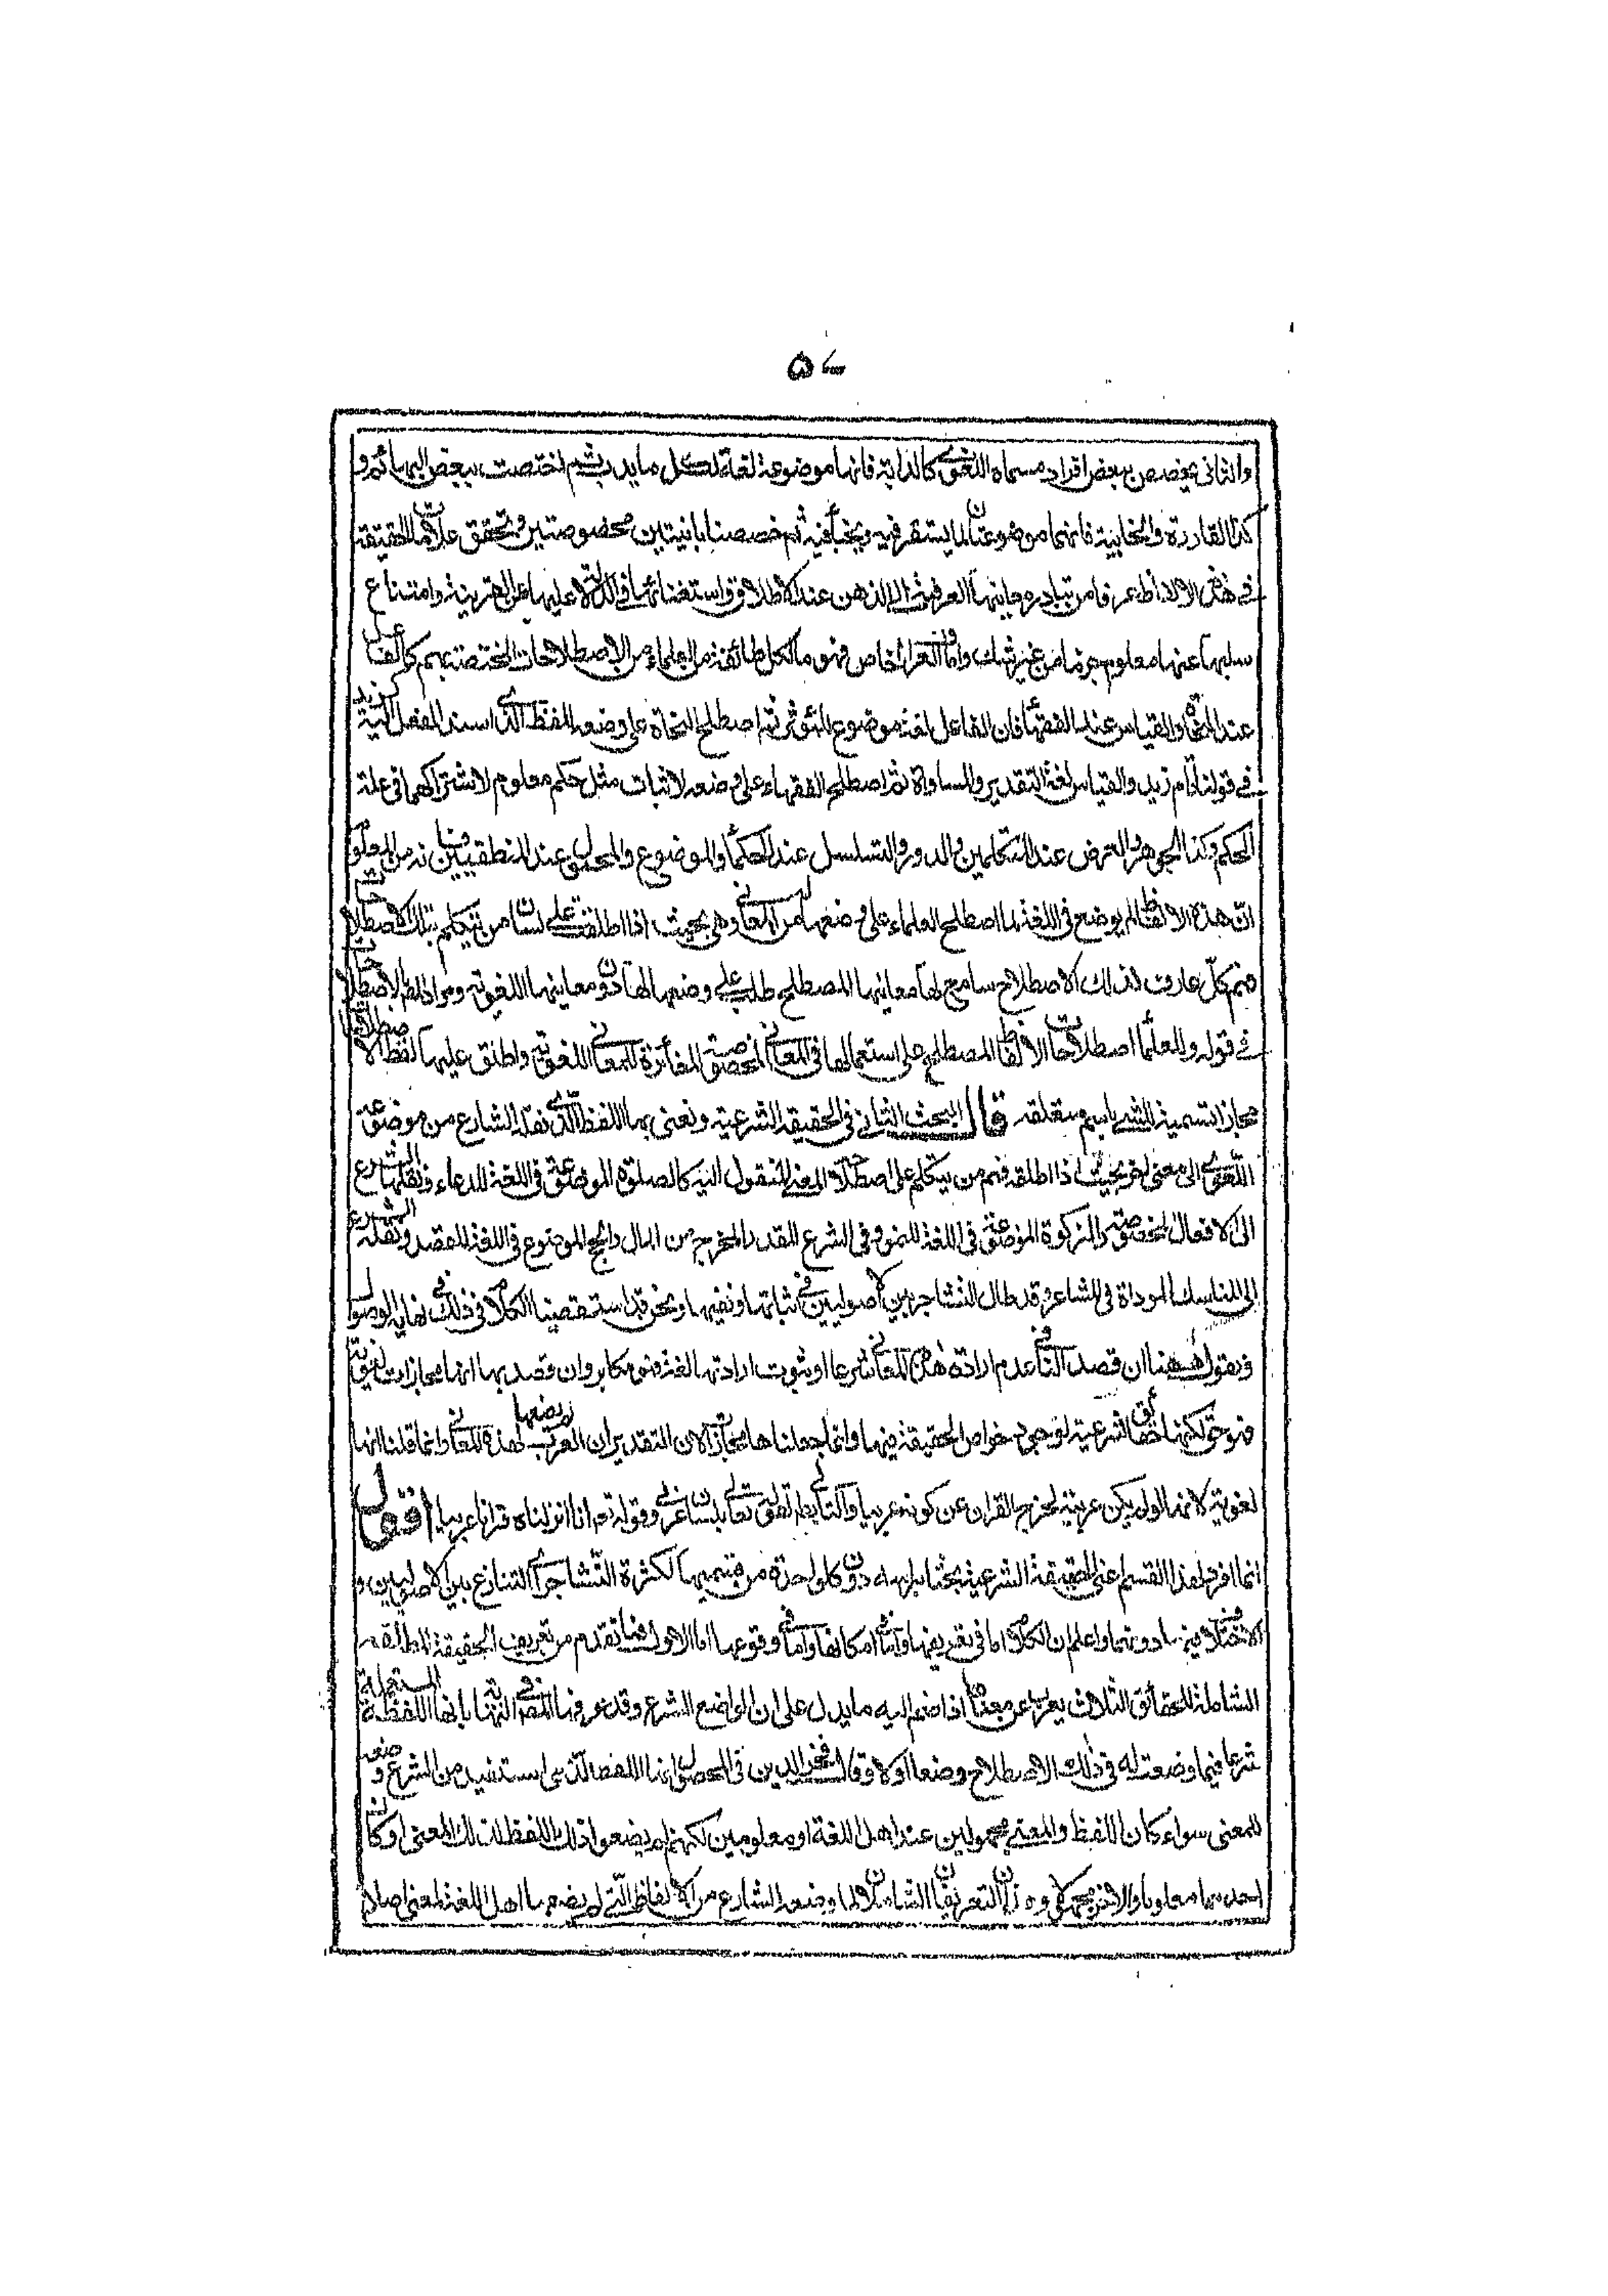 ٥٠
والثانى يخصص ببعض افراد مسماه اللغوى كالدابة فانها موضوعة لغة لكل ما يدب ثم اختصت ببعض البهائم و
كذا القارورة والخابية فانهما موضوعتان لما يستقر فيه ويخبأ فيه ثم خصصتا بانيتين مخصوصتين وتحقق علامات الحقيقة
فى هذه الالفاظ عرفا من تبادر معانيها العرفية الى الذهن عند الاطلاق واستغنائها فى الدلالة عليها عن القرينة وامتناع
سلبها عنها معلوم عرفا من غير شك واما العرف الخاص فهو ما لكل طائفة من العلماء من الاصطلاحات المختصة بهم كالفاعل
عند النحاة والقياس عند الفقهاء فان الفاعل لغة موضوع للمؤثر ثم اصطلح النحاة على وضعه للفظ الذى اسند الفعل اليه كزيد
فى قولنا قام زيد والقياس لغة التقدير والمساواة ثم اصطلح الفقهاء على وضعه لاثبات مثل حكم معلوم لاشتراكهما فى علة
الحكم وكذا الجوهر والعرض عند المتكلمين والدور والتسلسل عند الحكماء والموضوع والمحمول عند المنطقيين فانه من المعلوم
ان هذه الالفاظ لم يوضع فى اللغة لما اصطلح العلماء على وضعها له من المعانى وهى بحيث اذا اطلقت على لسان من يتكلم بتلك الاصطلاحات
فهم كل عارف لذلك الاصطلاح سامع لها معانيها المصطلح على وضعها لها دون معانيها اللغوية ومراده بالاصطلاحات
فى قوله وللعلماء اصطلاحات الالفاظ المصطلح على استعمالها فى المعانى المخصوصة المغائرة للمعانى اللغوية واطلق عليها لفظ الاصطلاحات
مجازا تسمية للشىء باسم متعلقه قال البحث الثانى فى الحقيقة الشرعية ونعنى بها اللفظ الذى نقله الشارع من موضوعه
اللغوى الى معنى اخر بحيث اذا اطلقه فهم من يتكلم على اصطلاحه المعنى المنقول اليه كالصلوة الموضوعة فى اللغة للدعاء ونقلها الشارع
الى الافعال المخصوصة والزكوة الموضوعة فى اللغة للنمو وفى الشرع للقدر المخرج من المال والحج الموضوع فى اللغة للقصد ونقله الشرع
الى المناسك الموداة فى المشاعر وقد طال التشاجر بين الاصوليين فى اثباتها ونفيها ونحن قد استقصينا الكلام فى ذلك فى نهاية الوصول
ونقول ههنا ان قصد النافى عدم ارادة هذه المعانى شرعا او ثبوت ارادتها لغة فهو مكابر وان قصد بها انها مجازات لغوية
فهو حق لكنها حقائق شرعية لوجود خواص الحقيقة فيها وانما جعلناها مجازات لان التقدير ان العرب لم يضعها لهذه المعانى وانما قلنا انها
لغوية لانها لو لم يكن عربية لخرج القران عن كونه عربيا والتالى باطل لقوله تعالى بلسان عربى وقوله تعالى انا انزلناه قرانا عربيا اقول
انما افرد لهذا القسم اعنى الحقيقة الشرعية بحثا براسه دون كل واحدة من قسيميها لكثرة التشاجر اى التنازع بين الاصوليين و
الاختلاف فيها دونهما واعلم ان الكلام اما فى تعريفها واما فى امكانها واما فى وقوعها اما الاول فما تقدم من تعريف الحقيقة المطلقة
الشاملة للحقائق الثلاث يعرب عن معناها اذا ضم اليه ما يدل على ان الواضع الشرع وقد عرفها المصنف فى النهاية بانها اللفظة المستعملة
شرعا فيما وضعت له فى ذلك الاصطلاح وضعا اولا وقال فخر الدين فى المحصول انها اللفظ الذى استفيد من الشرع وضعه
للمعنى سواء كان اللفظ والمعنى مجهولين عند اهل اللغة او معلومين لكنهم لم يضعوا ذلك اللفظ لذلك المعنى او كان
احدهما معلوما والاخر مجهولا وهذان التعريفان الشاملان لما وضعه الشارع من الالفاظ التى لم يضعها اهل اللغة لمعنى اصلا